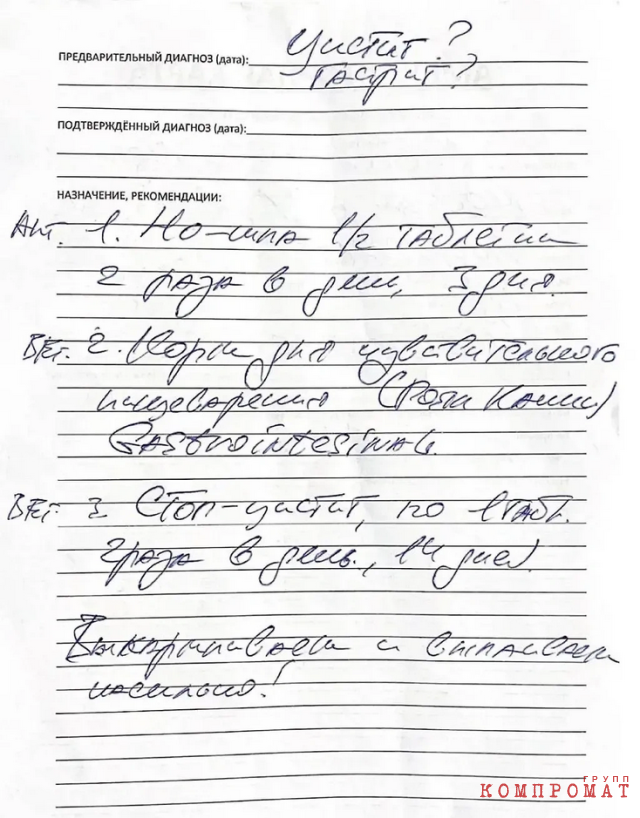 ПРЕДВАРИТЕЛЬНЫЙ ДИАГНОЗ (дата): Цистит?
Гастрит?
ПОДТВЕРЖДЁННЫЙ ДИАГНОЗ (дата):
НАЗНАЧЕНИЕ, РЕКОМЕНДАЦИИ:
Апт. 1. Но-шпа 1/2 таблетки
2 раза в день, 3 дня.
Вет. 2. Корм для чувствительного
пищеварения (Роял Канин)
Gastrointestinal.
Вет. 3. Стоп-цистит, по 1 табл.
2 раза в день, 14 дней.
Выкармливаем и выпаиваем
насильно!
ГРУПП
КОМПРОМАТ